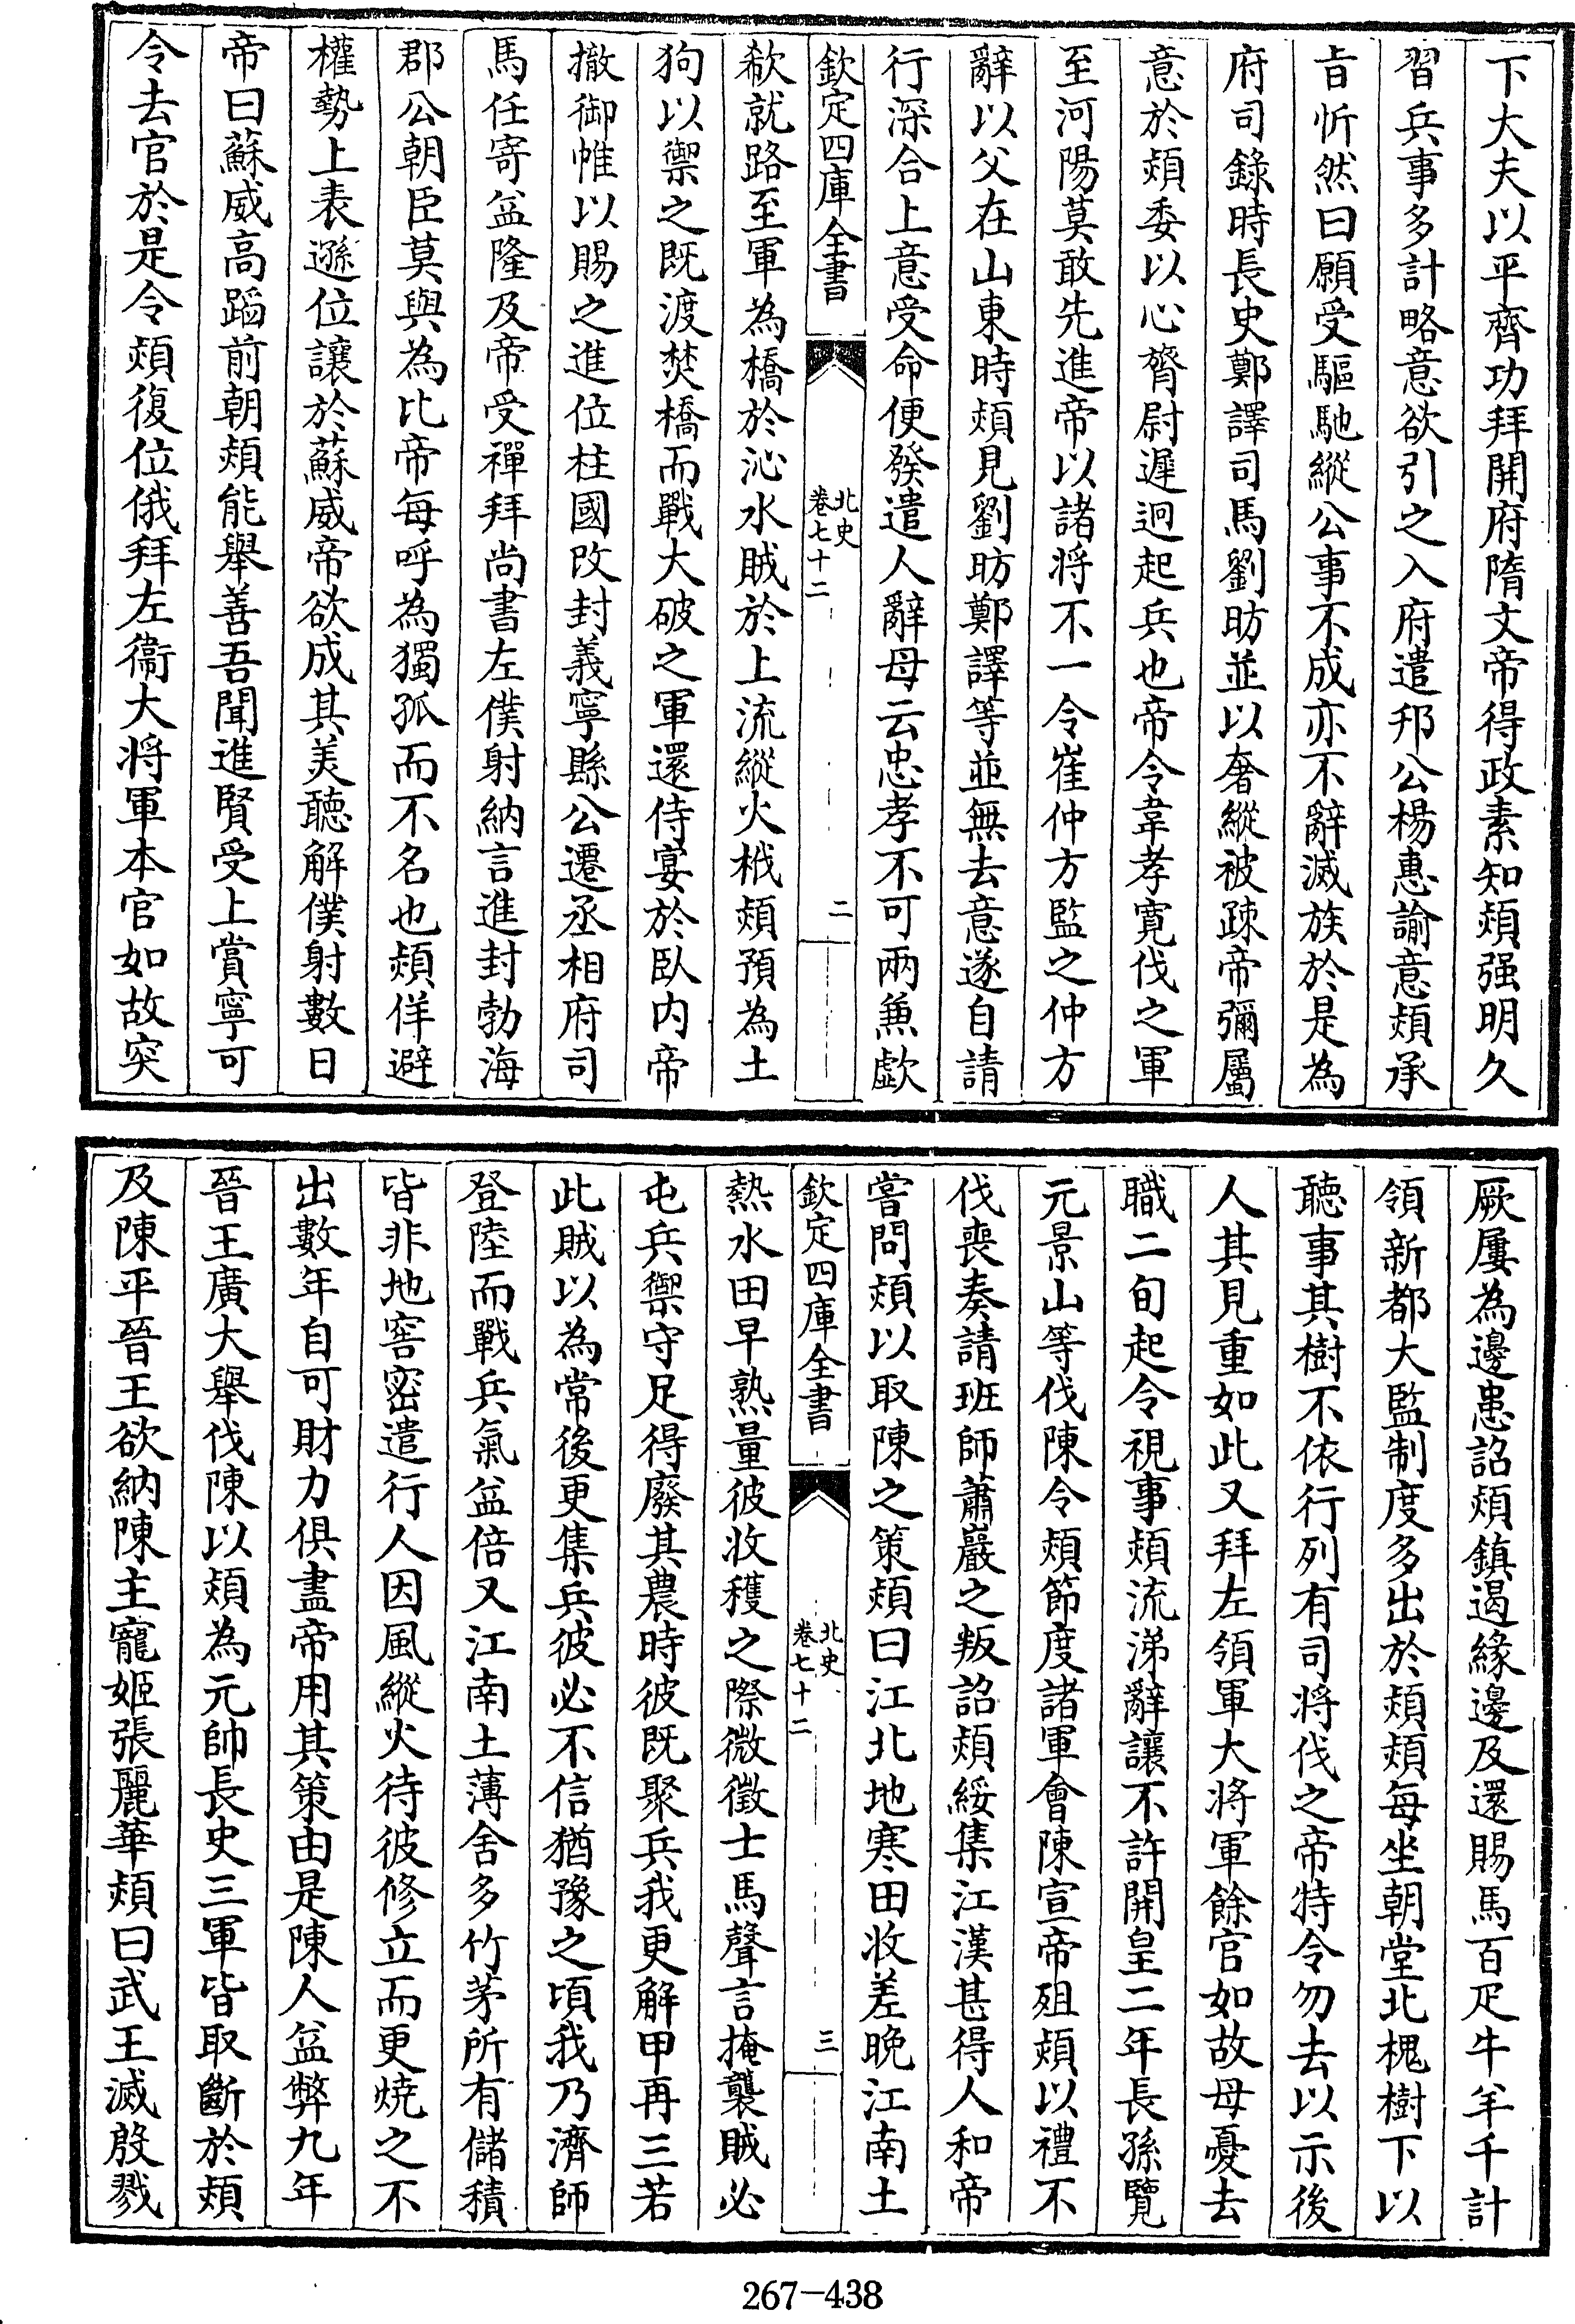 下大夫以平齊功拜開府隋文帝得政素知熲强明久
習兵事多計略意欲引之入府遣邗公楊惠諭意熲承
㫖忻然曰願受驅馳縱公事不成亦不辭滅族於是為
府司錄時長史鄭譯司馬劉昉並以奢縱被疎帝彌屬
意於熲委以心膂尉遲迥起兵也帝令韋孝寛伐之軍
至河陽莫敢先進帝以諸將不一令崔仲方監之仲方
辭以父在山東時熲見劉昉鄭譯等並無去意遂自請
行深合上意受命便發遣人辭母云忠孝不可兩兼歔
欽定四庫全書
北史
卷七十二
二
欷就路至軍為橋於沁水賊於上流縱火栰熲預為土
狗以禦之既渡焚橋而戰大破之軍還侍宴於臥内帝
撤御帷以賜之進位柱國改封義寧縣公遷丞相府司
馬任寄益隆及帝受禪拜尚書左僕射納言進封勃海
郡公朝臣莫與為比帝每呼為獨孤而不名也熲佯避
權勢上表遜位讓於蘇威帝欲成其美聽解僕射數日
帝曰蘇威高蹈前朝熲能舉善吾聞進賢受上賞寧可
令去官於是令熲復位俄拜左衞大將軍本官如故突
厥屢為邊患詔熲鎮遏緣邊及還賜馬百疋牛羊千計
領新都大監制度多出於熲熲每坐朝堂北槐樹下以
聽事其樹不依行列有司將伐之帝特令勿去以示後
人其見重如此又拜左領軍大將軍餘官如故母憂去
職二旬起令視事熲流涕辭讓不許開皇二年長孫覽
元景山等伐陳令熲節度諸軍會陳宣帝殂熲以禮不
伐喪奏請班師蕭巖之叛詔熲綏集江漢甚得人和帝
嘗問熲以取陳之策熲曰江北地寒田收差晚江南土
欽定四庫全書
北史
卷七十二
三
熱水田早熟量彼收穫之際微徵士馬聲言掩襲賊必
屯兵禦守足得廢其農時彼既聚兵我更解甲再三若
此賊以為常後更集兵彼必不信猶豫之頃我乃濟師
登陸而戰兵氣益倍又江南土薄舍多竹茅所有儲積
皆非地窖密遣行人因風縱火待彼修立而更燒之不
出數年自可財力俱盡帝用其策由是陳人益弊九年
晉王廣大舉伐陳以熲為元帥長史三軍皆取斷於熲
及陳平晉王欲納陳主寵姬張麗華熲曰武王滅殷戮
267-438